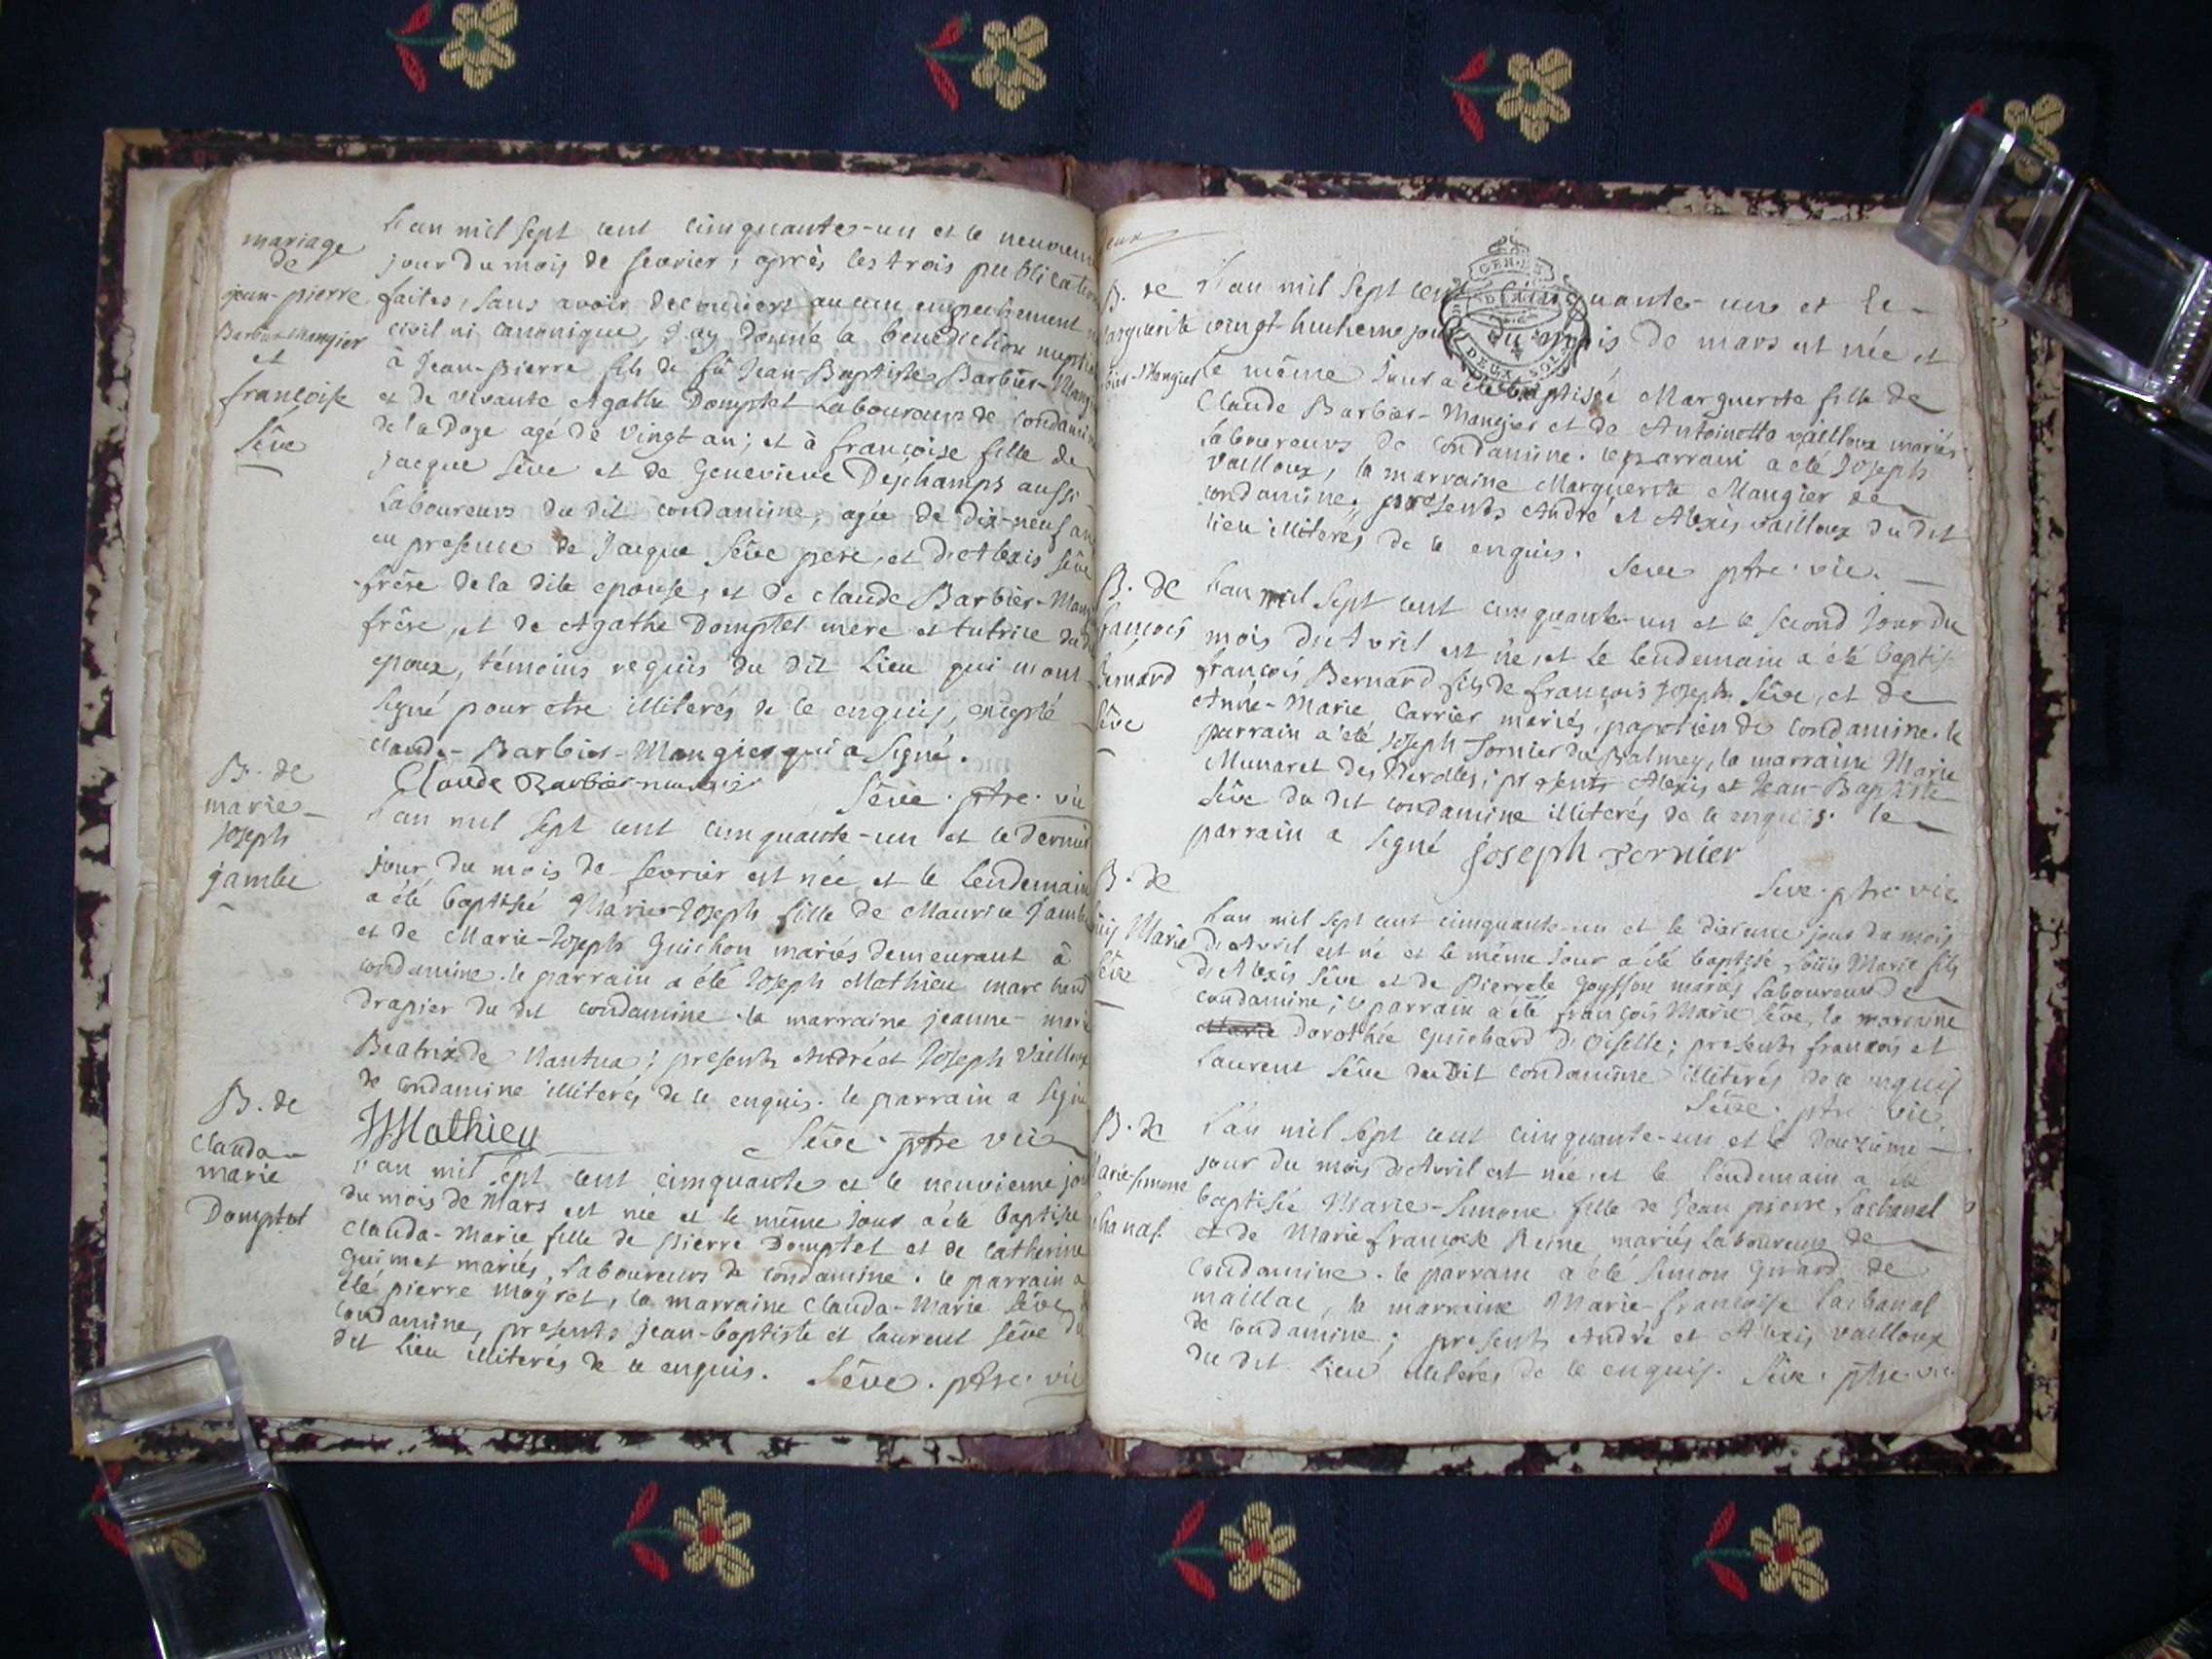 mariage
de
jean-pierre
Barbier Mangier
et
francoise
sêve
L'an mil sept cent cinquante-un et le neuviem
jour du mois de fevrier, après les trois publication
faites, sans avoir decouvert aucun empechement
civil ni canonique, j'ay donné la benediction nuptia
à Jean-Pierre fils de fû Jean-Baptiste Barbier-Mangi
et de vivante Agathe Domptet Laboureurs de Condami
de la Doye agé de vingt an; et à françoise fille de
jacque sêve et de Genevieve Deschamps aussi
Laboureurs du dit condamine, agée de dix-neuf an
en presence de Jacque sêve pere, et d'Alexis sêve
frère de la dite epouse, et de claude Barbier-Mang
frère, et de Agathe Domptet mère et tutrice du d
epoux, témoins requis du dit Lieu qui n'ont
signé pour etre illiteres de ce enquis, excepté
claude-Barbier-Mangier qui a signé.
Claude Barbier-mangier
Sêve. ptre. vic
B. de
marie-
Joseph
jambe
L'an mil sept cent cinquante-un et le dernier
jour du mois de fevrier est née et le lendemain
a été baptisée Marie-Joseph fille de Maurice Jambe
et de Marie-Joseph Guichon mariés demeurant à
condamine. le parrain a été Joseph Mathieu marchand
drapier du dit condamine. la marraine jeanne-marie
Beatrix de Nantua; presents André et Joseph Vailloux
de condamine illiterés de ce enquis. le parrain a signé
Mathieu
Sêve. ptre vic
B. de
Clauda-
marie
Domptet
L'an mil sept cent cinquante et le neuvieme jou
du mois de Mars est née et le même jour a été baptisée
Clauda-Marie fille de Pierre Domptet et de Catherine
Guimet mariés, Laboureurs de condamine. le parrain a
été pierre Moyret, la marraine Clauda-Marie sêve d
condamine, presents jean-baptiste et Laurent sêve du
dit Lieu illiterés de ce enquis. Sêve. ptre. vic
eux
B. de
arguerite
bier-Mangier
L'an mil sept cent cinquante-un et le
vingt-huitieme jour du mois de mars est née et
GEN
DEUX SOLS
le même jour a été baptisée Marguerite fille de
Claude Barbier-Mangier et de Antoinette vailloux mariés
Laboureurs de Condamine. le parrain a été Joseph
Vailloux, la marraine Marguerite Mangier de
condamine, presents André et Alexis vailloux du dit
lieu illiterés de ce enquis.
Seve ptre. vic.
B. de
françois
Bernard
sêve
L'an mil sept cent cinquante-un et le second Jour du
mois d'Avril est né, et le lendemain a été baptisé
françois Bernard fils de françois Joseph Sêve, et de
Anne-Marie Carrier mariés, papetier de Condamine. le
parrain a été Joseph Fornier du Balmey, la marraine Marie
Munaret des Nerolles; presents Alexis et Jean-Baptiste
Sêve du dit condamine illiterés de ce enquis. le
parrain a signé Joseph Fornier
Seve. ptre. vic.
B. de
ouis Marie
sêve
L'an mil sept cent cinquante-un et le dixieme jour du mois
d'Avril est né et le même Jour a été baptisé Louis Marie fils
d'Alexis Sêve et de Pierrete Goysson mariés Laboureurs de
condamine; le parrain a été françois Marie sêve, la marraine
Marie Dorothée Guichard d'Oiselle; presents francois et
Laurent Sêve du Dit condamine illiterés de ce enquis
Sêve. ptre. vic.
B. de
Marie-simone
chanal
L'an mil sept cent cinquante-un et le douzième
jour du mois d'Avril est née et le lendemain a été
baptisée Marie-Simone fille de Jean pierre Lachanal
et de Marie francoise Reine mariés Laboureurs de
Condamine. le parrain a été Simon Girard de
maillac, la marraine Marie-francoise Lachanal
de condamine; presents André et Alexis vailloux
du dit Lieu illiterés de ce enquis. Sêve. ptre vic.